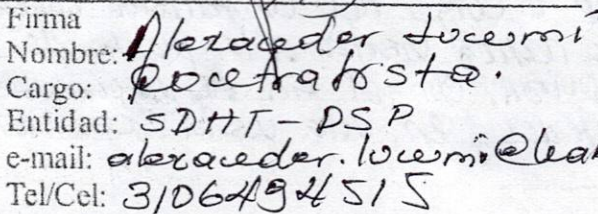 Firma
Nombre: Alexander Lucumi
Cargo: Contratista.
Entidad: SDHT-PSP
e-mail: alexander.lucumi@ha
Tel/Cel: 3106494515